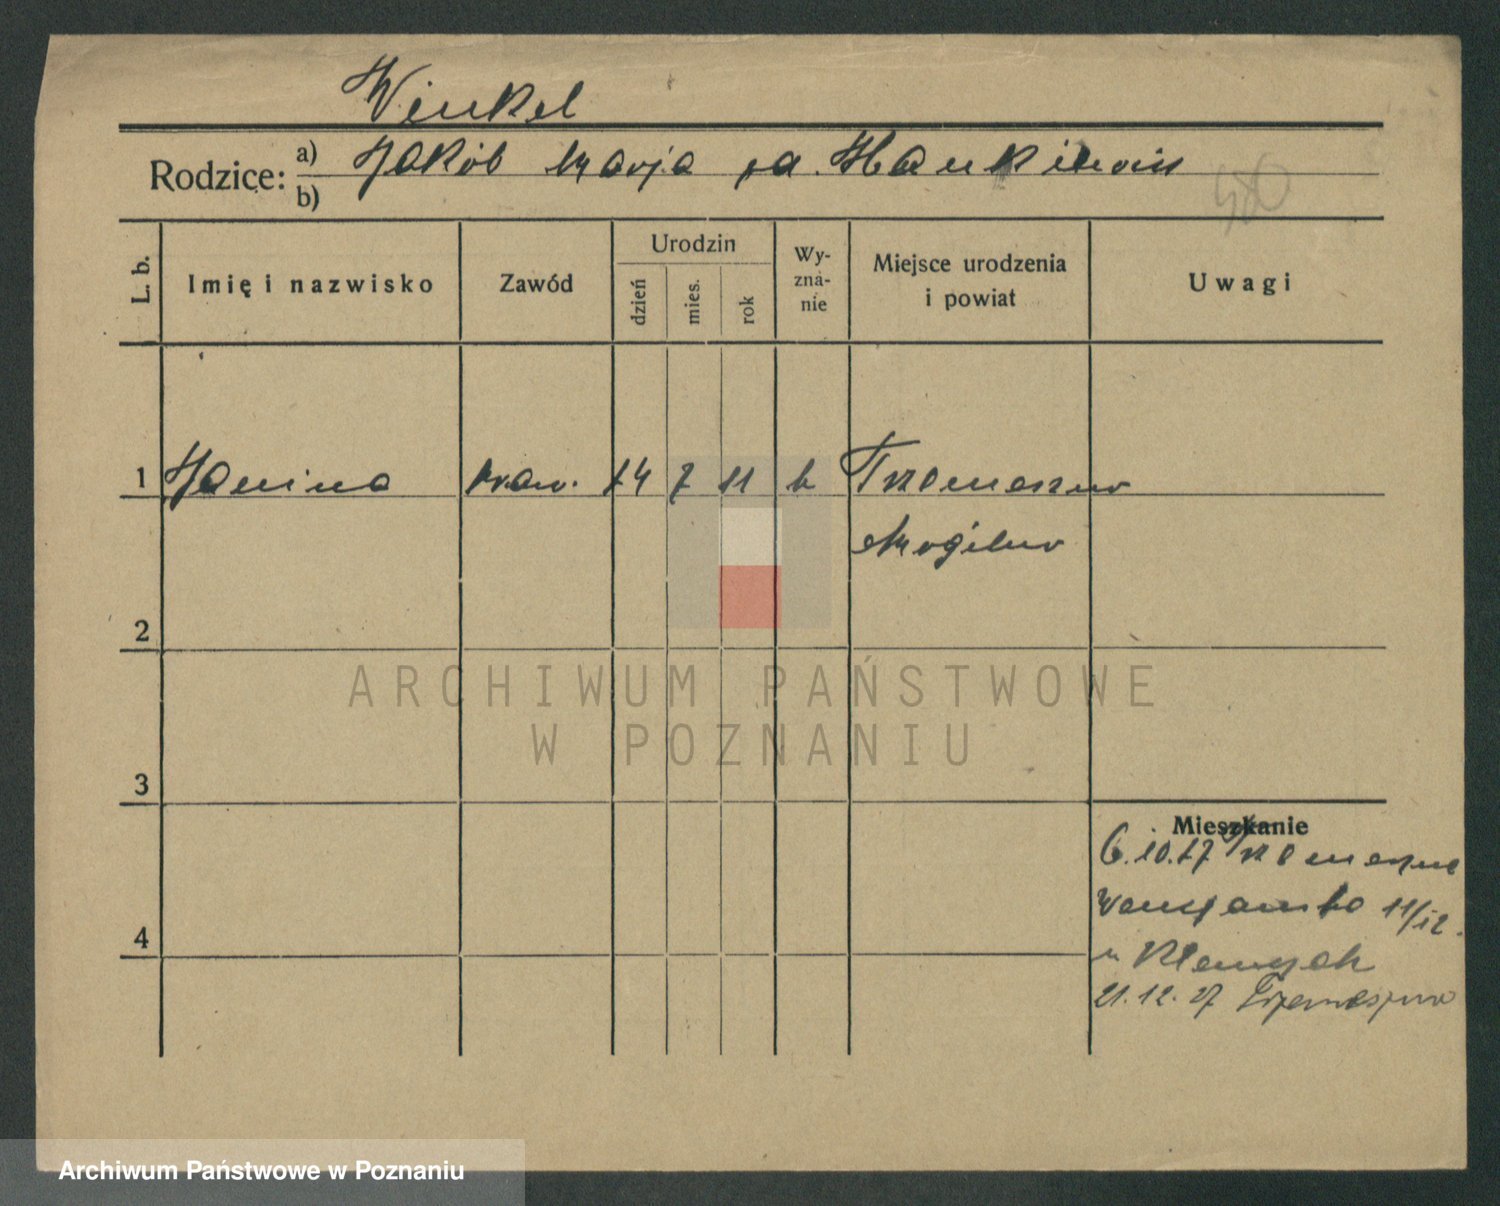 Winkel
Rodzice: a) Jakób Marja
b)
L. b.
Imię i nazwisko
Zawód
Urodzin
dzień
mies.
rok
Wy-
zna-
nie
Miejsce urodzenia
i powiat
Uwagi
1 Janina kraw. 14 7 11 k Trzemeszno
Mogilno
2
3
4
Mieszkanie
6.10.27 Trzemeszno
11/12.
21.12.27 Trzemeszno
ARCHIWUM PAŃSTWOWE
W POZNANIU
Archiwum Państwowe w Poznaniu